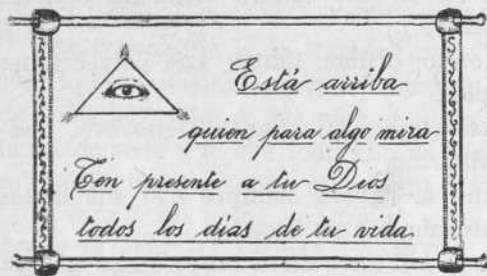 Está arriba
quien para algo mira
Ten presente a tu Dios
todos los días de tu vida.